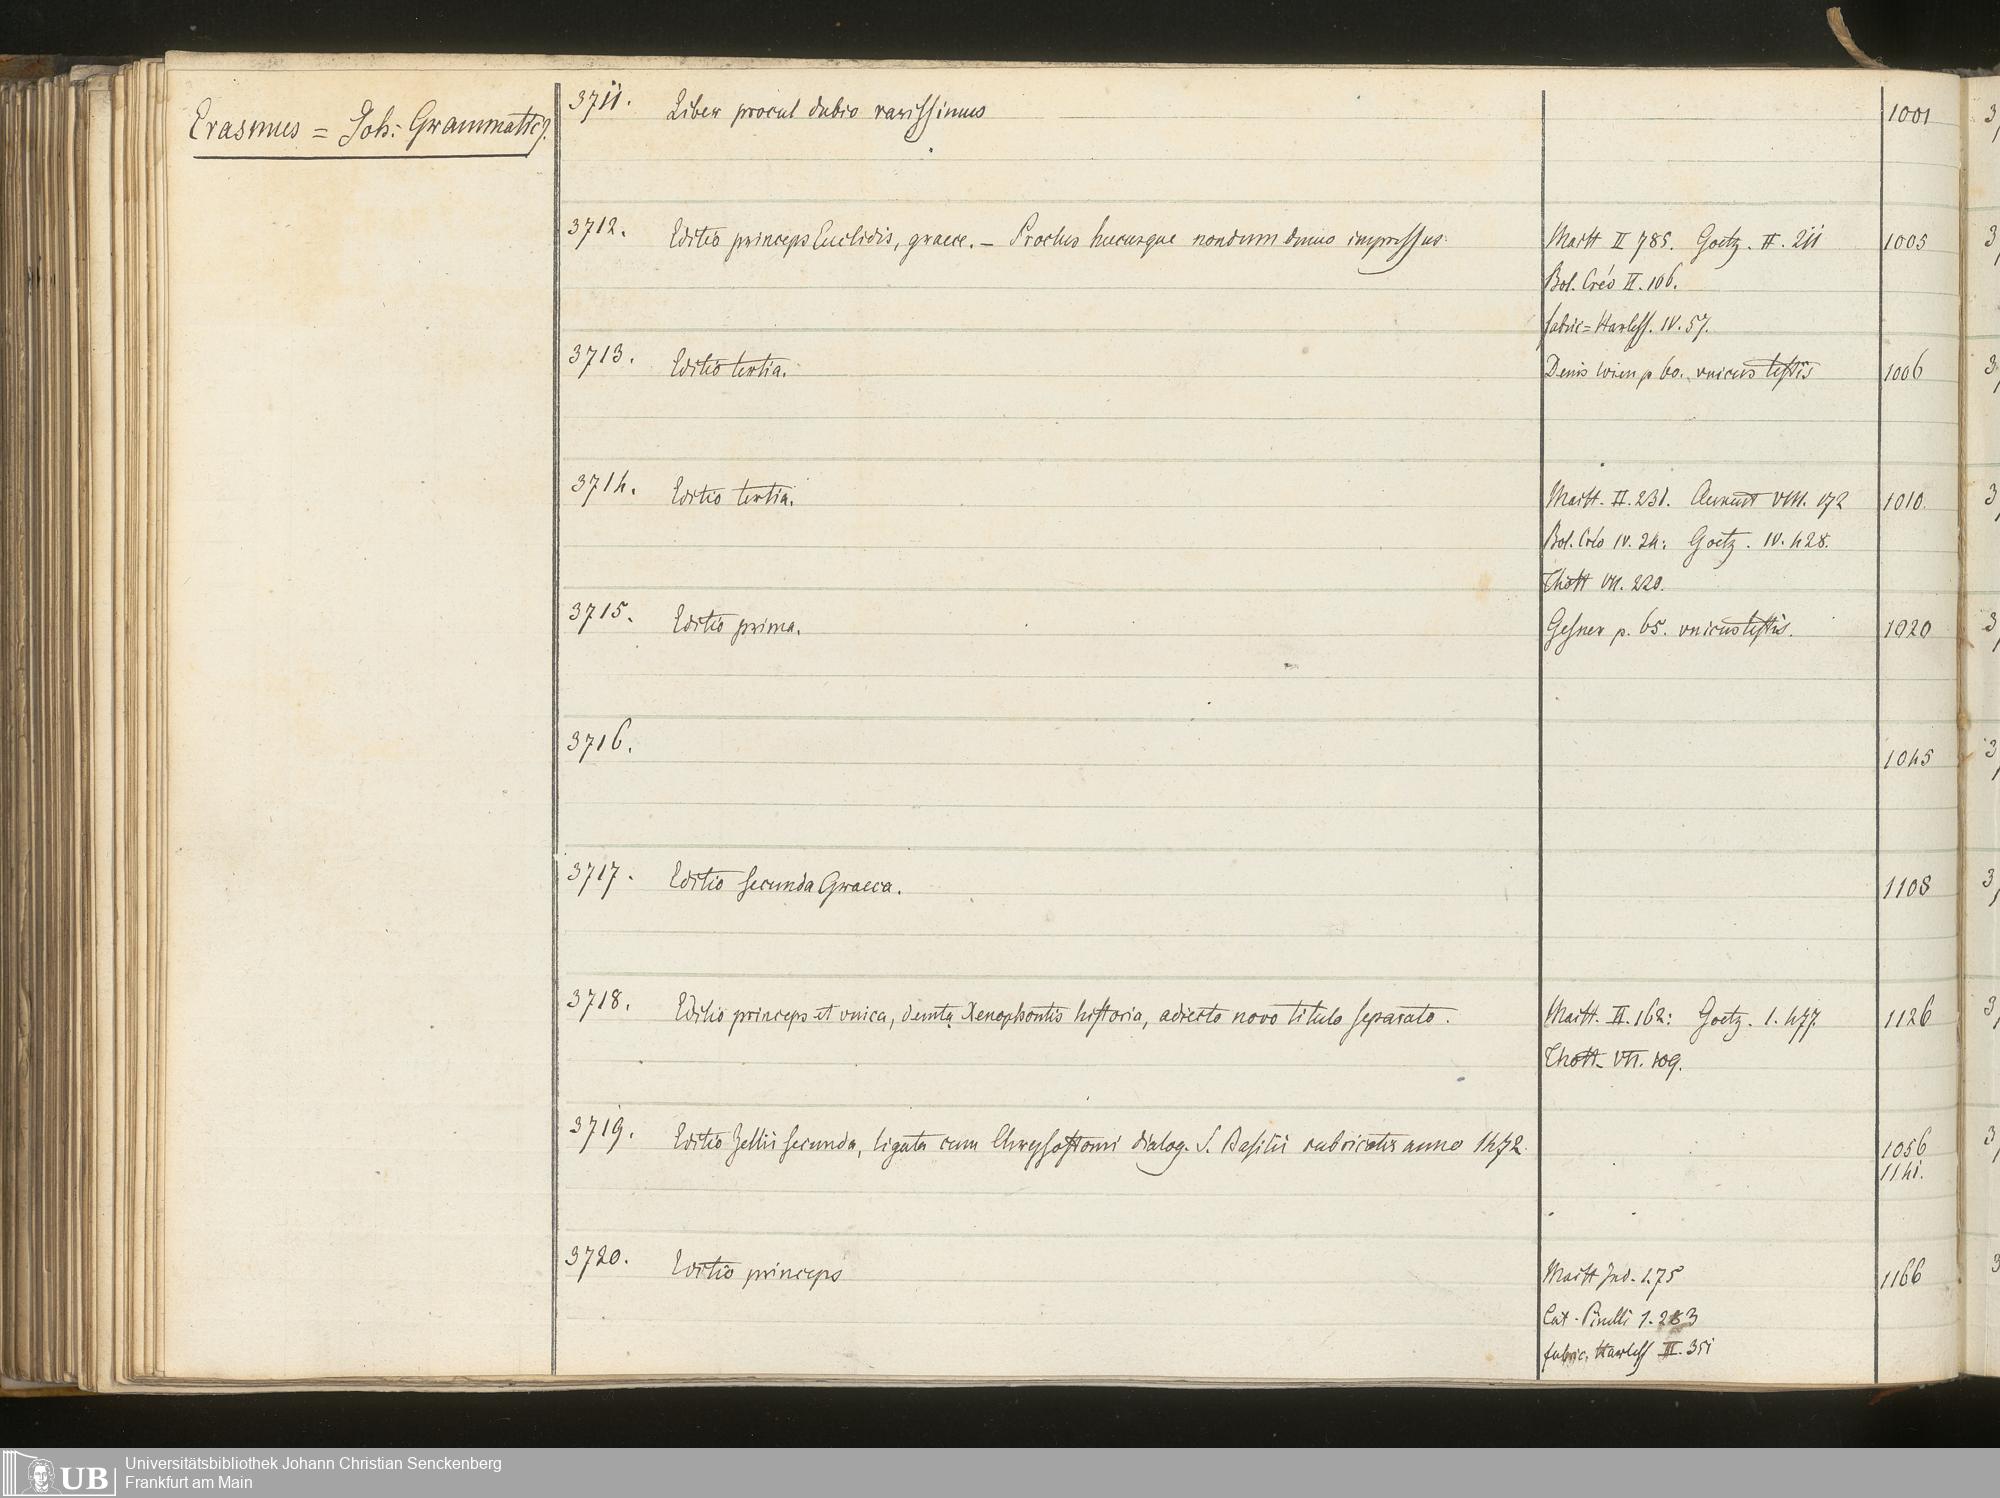 Erasmus = Joh: Grammatic9.
3711. Liber procul dubio rarissimus 1001
3712. Editio princeps Euclidis, graece. – Proclus hucusque nondum denuo impressus. Maitt II 785. Goetz. II. 211 1005
Bol. Créo II. 106.
fabric = Harless. IV. 57.
3713. Editio tertia. Denis Wien p 60. unicus testis 1006
3714. Editio tertia. Maitt. II. 231. VIII. 172 1010.
Bol. Créo IV. 24: Goetz. IV. 428.
Thott VII. 220.
3715. Editio prima. Gesner p. 65. unicus testis. 1020
3716. 1045
3717. Editio secunda Graeca. 1108
3718. Editio princeps et unica, demta Xenophontis historia, adiecto novo titulo separato. Maitt. II. 162: Goetz. 1. 477. 1126
Thott. VII. 109.
3719. Editio Zellii secunda, ligata cum Chrysostomi dialog. S. Basilii rubricatis anno 1472. 1056
1141.
3720. Editio princeps Maitt Ind. 1.75 1166
Cat. Pinelli 1. 283
fabric. Harless III. 351
3,
3,
3,
3,
3,
3,
3,
3,
3,
3
UB Universitätsbibliothek Johann Christian Senckenberg
Frankfurt am Main